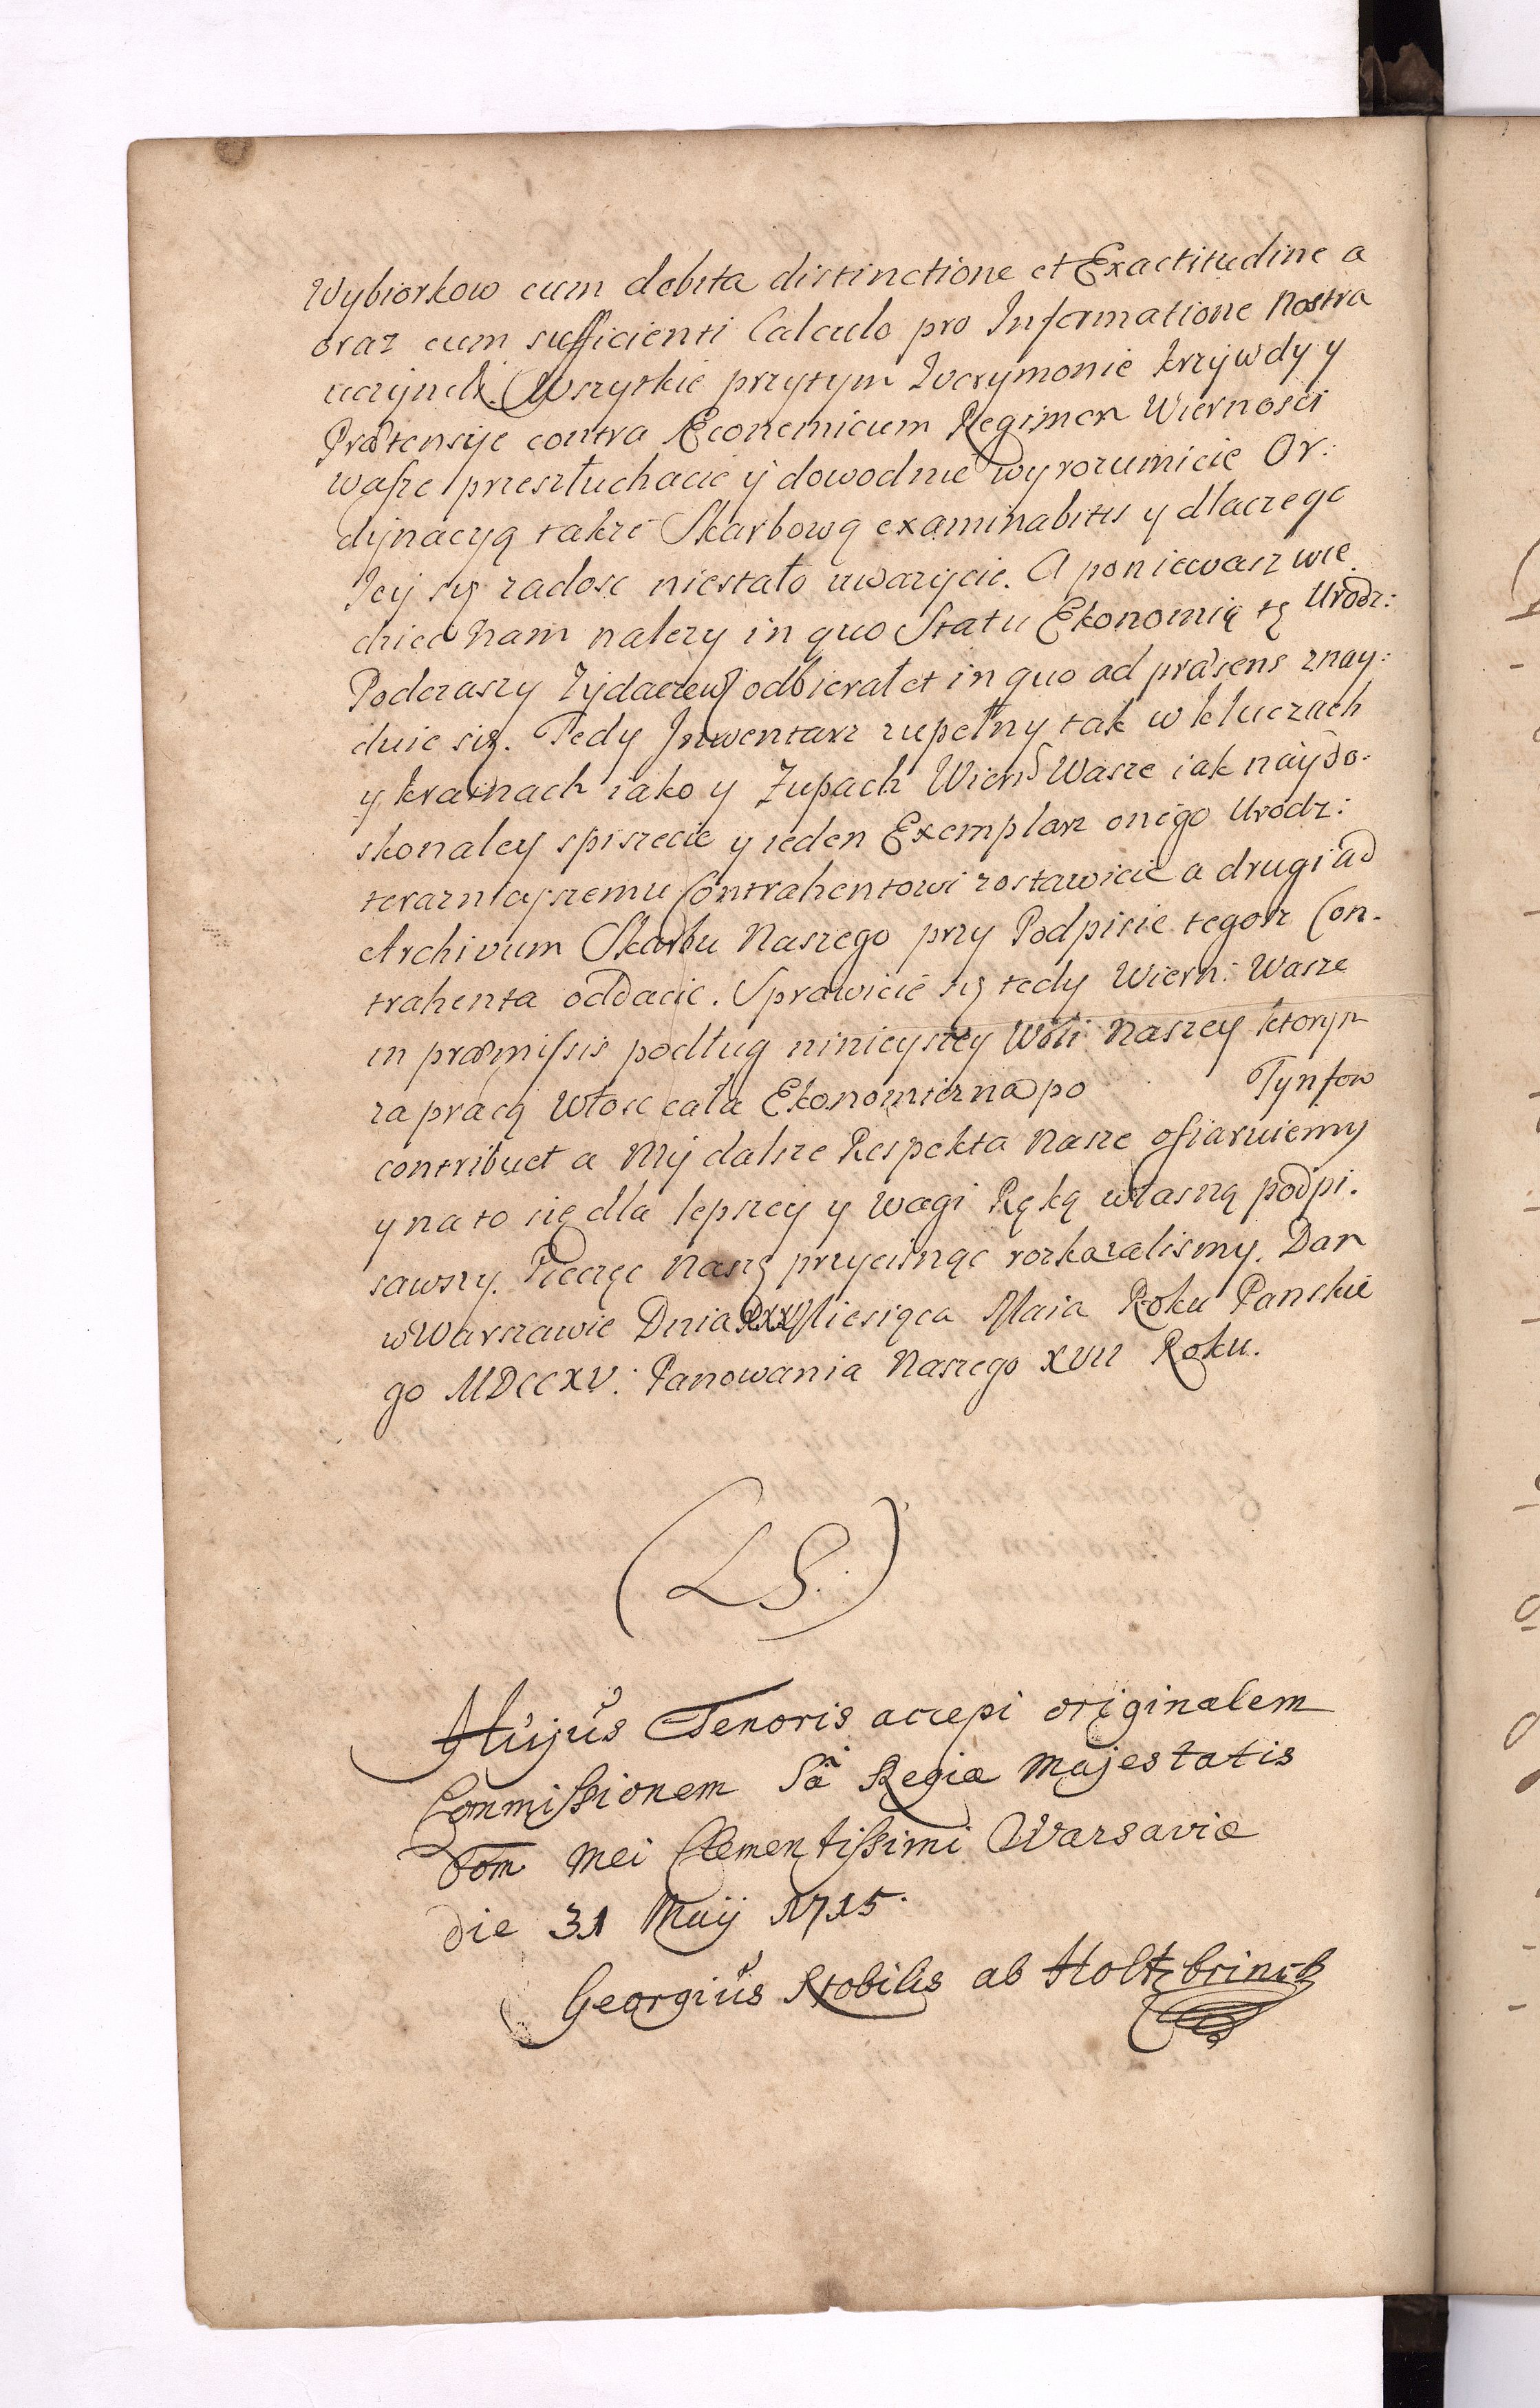 Wybiorkow cum debita distinctione et Exactitudine a
oraz cum sufficienti Calculo pro Informatione Nostra
uczynili. Wszytkie przytym Kverymonie krzywdy y
Prætensije contra Œconomicum Regimen Wiernosci
wasze przesłuchacie y dowodnie wyrozumicie Or:
dynacyą także Skarbową examinabitis y dlaczego
Iey się zadosc niestało uwazycie. A poniewasz wie
dziec Nam nalezy in quo Statu Ekonomię tę Urodz:
Podczaszy Zydaczew odbierał et in quo ad præsens znay:
duie się. Tedy Inwentarz zupełny tak w kluczach
y krainach iako y Zupach Wiern Wasze iak naydo-
skonaley spiszecie y ieden Exemplarz onego Urodz:
teraznieyszemu Contrahentowi zostawicie a drugi ad
Archivum Skarbu Naszego przy Podpisie tegosz Con-
trahenta oddacie. Sprawicie się tedy Wiern: Wasze
in præmissis podług ninieyszey Woli Naszey ktorym
za pracą Włosc cała Ekonomiczna po Tynfow
contribuet a My dalsze Respekta Nasze ofiaruiemy
y na to się dla lepszey y wagi Ręką własną podpi-
sawszy. Pieczęc Naszą przycisnąc rozkazalismy. Dan
w Warszawie Dnia XXX Miesiąca Maia Roku Panskie
go MDCCXV. Panowania Naszego XVII Roku.
(L S.)
Hujus Tenoris accepi originalem
Commissionem Sã Regiæ Majestatis
Dom mei Clementissimi Warsaviæ
die 31 Maij 1715.
Georgius Nobilis ab Holtzbrinck